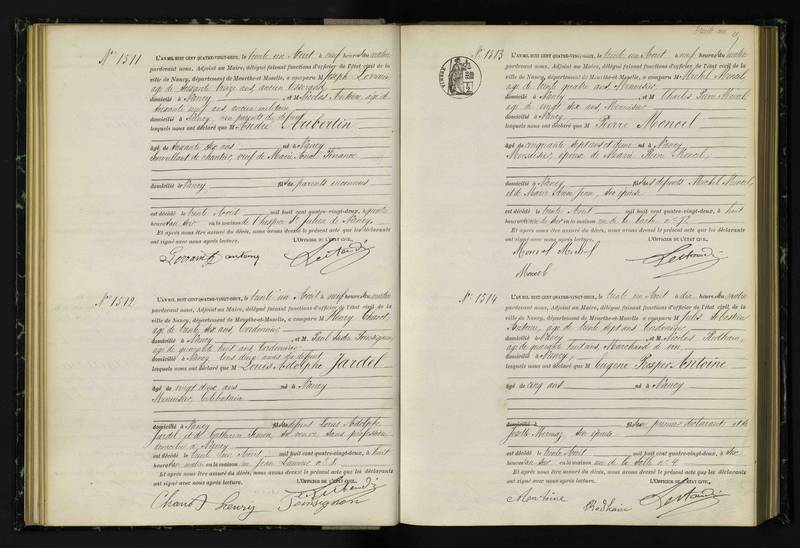 N° 1511
L'AN MIL HUIT CENT QUATRE-VINGT-DEUX, le trente un Août à neuf heures du matin
pardevant nous, Adjoint au Maire, délégué faisant fonctions d'officier de l'état civil de la
ville de Nancy, département de Meurthe-et-Moselle, a comparu M Joseph Lorrain
âgé de soixante treize ans, ancien
domicilié à Nancy et M Nicolas Antoine, âgé de
soixante neuf ans, ancien militaire
domicilié à Nancy, non parents du défunt
lesquels nous ont déclaré que M André Aubertin
âgé de soixante dix ans né à Nancy
surveillant de chantier, veuf de Marie Anne
domicilié à Nancy fils de parents inconnus
est décédé le trente Août mil huit cent quatre-vingt-deux, à quatre
heures du soir en la maison de l'hospice St Julien de Nancy
Et après nous être assuré du décès, nous avons dressé le présent acte que les déclarants
ont signé avec nous après lecture. L'OFFICIER DE L'ÉTAT CIVIL,
Lorrain antoine
N° 1512
L'AN MIL HUIT CENT QUATRE-VINGT-DEUX, le trente un Août à neuf heures du matin
pardevant nous, Adjoint au Maire, délégué faisant fonctions d'officier de l'état civil de la
ville de Nancy, département de Meurthe-et-Moselle, a comparu M Henry Chanot,
âgé de trente six ans, cordonnier
domicilié à Nancy et M Paul
âgé de quarante huit ans, cordonnier
domicilié à Nancy tous deux amis du défunt
lesquels nous ont déclaré que M Louis Adolphe Jardel
âgé de vingt deux ans né à Nancy
Menuisier, Célibataire
domicilié à Nancy fils de défunt Louis Adolphe
Jardel et de Catherine sa veuve sans profession
domiciliée à Nancy
est décédé le trente un Août mil huit cent quatre-vingt-deux, à huit
heures du matin en la maison rue Jean Lamour n° 1
Et après nous être assuré du décès, nous avons dressé le présent acte que les déclarants
ont signé avec nous après lecture. L'OFFICIER DE L'ÉTAT CIVIL,
Chanot henry
N° 1513
L'AN MIL HUIT CENT QUATRE-VINGT-DEUX, le trente un Août à neuf heures du matin
pardevant nous, Adjoint au Maire, délégué faisant fonctions d'officier de l'état civil de la
ville de Nancy, département de Meurthe-et-Moselle, a comparu M Michel Moncel
âgé de trente quatre ans, Menuisier
domicilié à Nancy et M Charles Pierre Moncel
âgé de vingt six ans, Menuisier
domicilié à Nancy
lesquels nous ont déclaré que M Pierre Moncel
âgé de cinquante sept ans et demi né à Nancy
Menuisier, époux de Marie
domicilié à Nancy fils des défunts Michel Moncel,
et de Marie Anne Jean, son épouse
est décédé le trente Août mil huit cent quatre-vingt-deux, à huit
heures du soir en la maison rue n° 72
Et après nous être assuré du décès, nous avons dressé le présent acte que les déclarants
ont signé avec nous après lecture. L'OFFICIER DE L'ÉTAT CIVIL,
Moncel Michel
Moncel
N° 1514
L'AN MIL HUIT CENT QUATRE-VINGT-DEUX, le trente un Août à dix heures du matin
pardevant nous, Adjoint au Maire, délégué faisant fonctions d'officier de l'état civil de la
ville de Nancy, département de Meurthe-et-Moselle, a comparu M Jules Sébastien
Antoine, âgé de trente sept ans Cordonnier
domicilié à Nancy et M Nicolas Redhain,
âgé de quarante huit ans, Marchand de vin
domicilié à Nancy,
lesquels nous ont déclaré que M Eugène Prosper Antoine
âgé de cinq ans né à Nancy
fils du premier déclarant et de
son épouse
est décédé le trente Août mil huit cent quatre-vingt-deux, à six
heures du soir en la maison rue de la Salle n° 4
Et après nous être assuré du décès, nous avons dressé le présent acte que les déclarants
ont signé avec nous après lecture. L'OFFICIER DE L'ÉTAT CIVIL,
Antoine Redhain